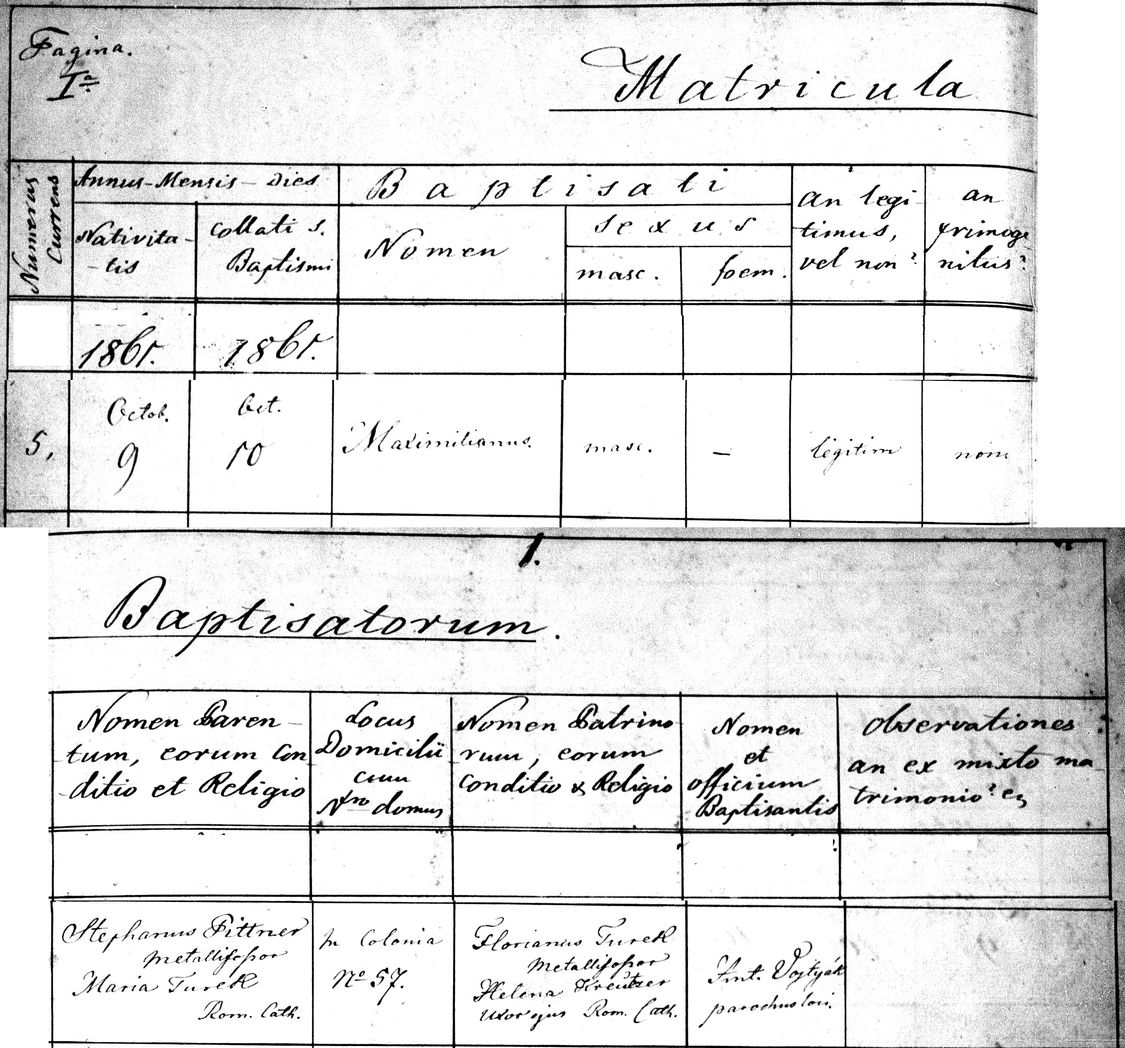 Pagina.
Iª
Matricula
Numerus
Currens
Annus-Mensis-Dies
Nativita-
-tis
Collati s.
Baptismi
Baptisati
Nomen
sexus
masc.
foem.
an legi-
timus,
vel non?
an
primoge
nitus?
1861.
1861.
5.
Octob.
9
Oct.
10
Maximilianus.
masc.
–
legitim
non
1.
Baptisatorum.
Nomen Paren-
tum, eorum Con
ditio et Religio
Locus
Domicilii
cum
Nro domus
Nomen Patrino
rum, eorum
Conditio & Religio
Nomen
et
officium
Baptisantis
Observationes
an ex mixto ma
trimonio?
Stephanus Pittner
Metallifossor
Maria Turek
Rom. Cath.
In Colonia
Nº 57.
Florianus Turek
Metallifossor
Helena Kreutzer
Uxor ejus Rom. Cath.
Vojtyák
parochus loci.